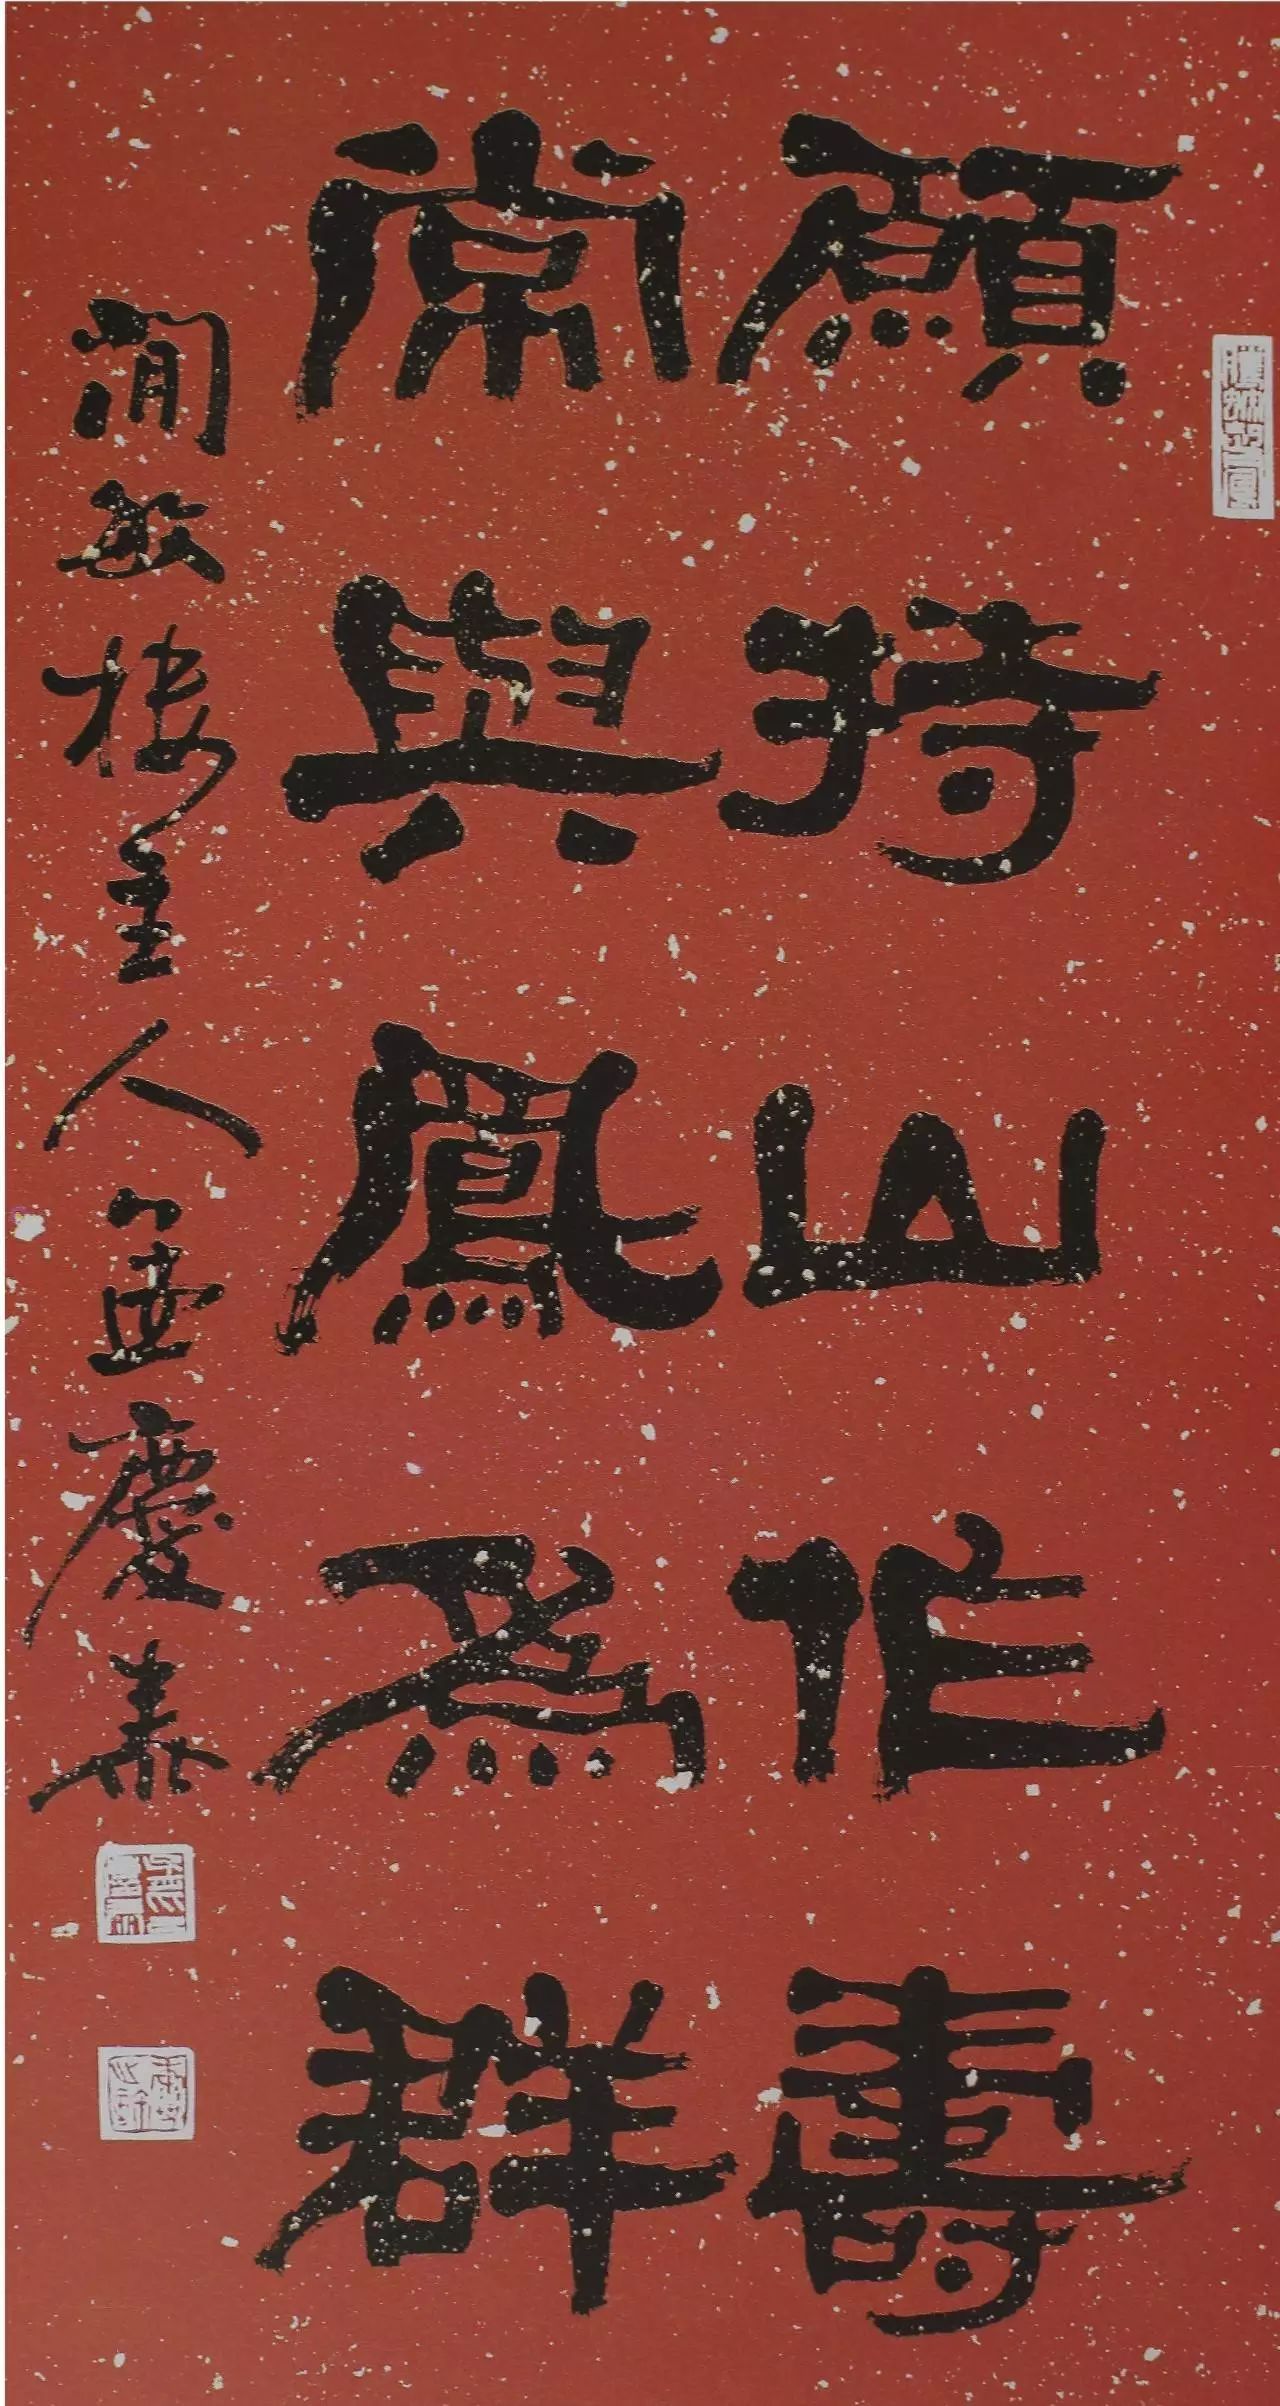 願持山作壽
常與鳳為群
閒敏樓主人孟慶泰